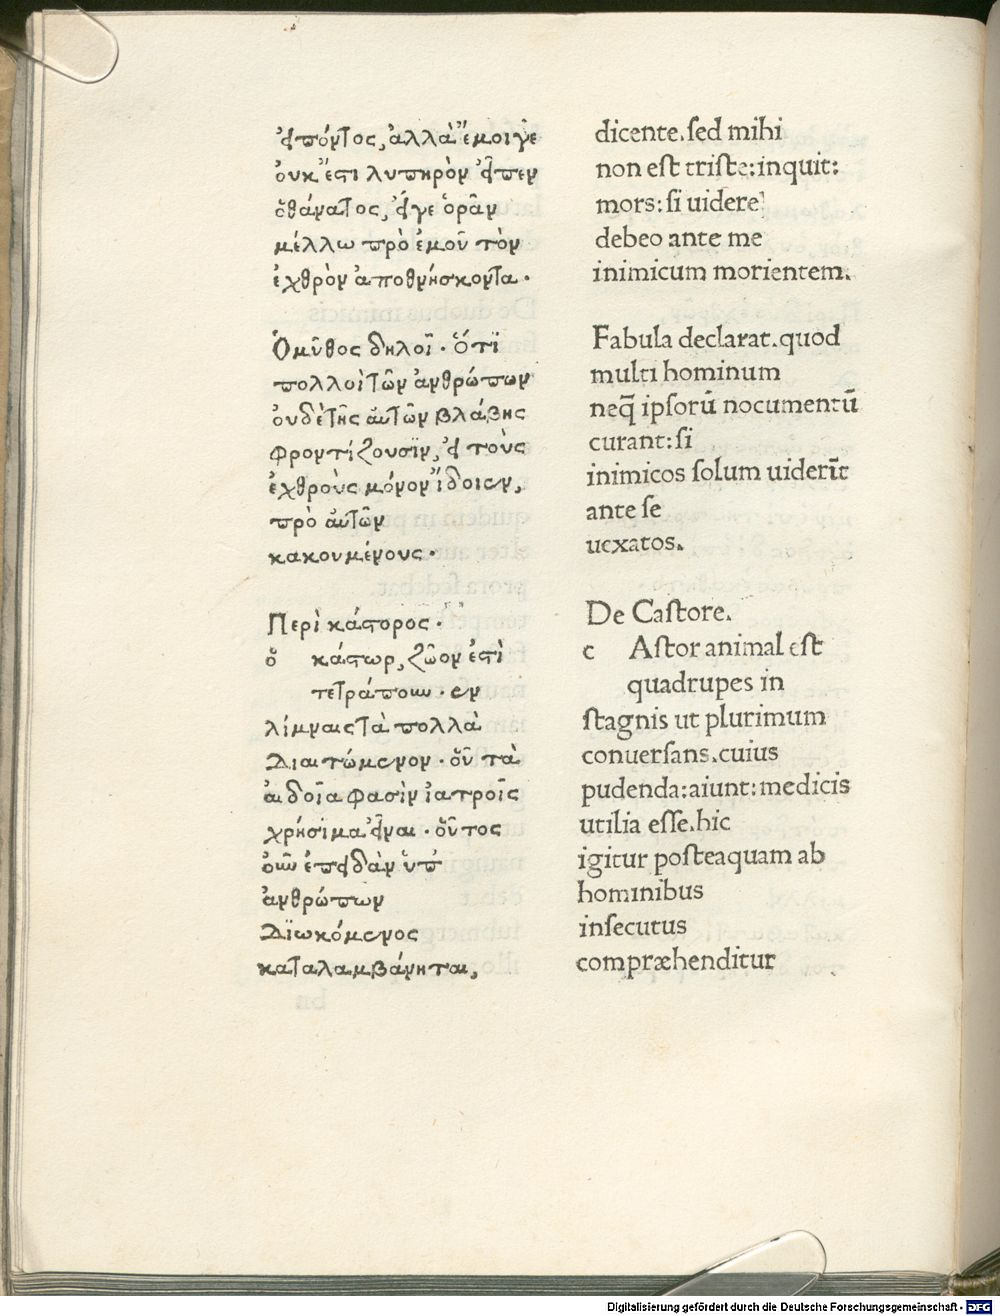 εἰπόντος, ἀλλὰ ἔμοιγε
ὀυκ ἔστι λυπηρὸν εἶπεν
ὁ θάνατος, εἴγε ὁρᾶν
μέλλω πρὸ ἐμοῦ τὸν
ἐχθρὸν ἀποθνήσκοντα ·
Ὁ μῦθος δηλοῖ · ὅτι
πολλοὶ τῶν ἀνθρώπων
ὀυδὲ τῆς ἀυτῶν βλάβης
φροντίζουσιν, εἰ τοὺς
ἐχθροὺς μόνον ἴδοιεν,
πρὸ ἀυτῶν
κακουμένους ·
Περὶ κάστορος ·
ὁ κάστωρ, ζῶον ἐστὶ
τετράπουν · ἐν
λίμναις τὰ πολλὰ
διαιτώμενον · ὅυ τὰ
ἀιδοῖα φασὶν ἰατροῖς
χρήσιμα εἶναι · ὅυτος
ὀυν ἐπειδὰν ὑπ'
ἀνθρώπων
διωκόμενος
καταλαμβάνηται,
dicente. sed mihi
non est triste: inquit:
mors: si uidere
debeo ante me
inimicum morientem.
Fabula declarat. quod
multi hominum
neq̃ ipsorũ nocumentũ
curant: si
inimicos solum uiderĩt
ante se
uexatos.
De Castore.
c Astor animal est
quadrupes in
stagnis ut plurimum
conuersans. cuius
pudenda: aiunt: medicis
utilia esse. hic
igitur posteaquam ab
hominibus
insecutus
compræhenditur
Digitalisierung gefördert durch die Deutsche Forschungsgemeinschaft - DFG